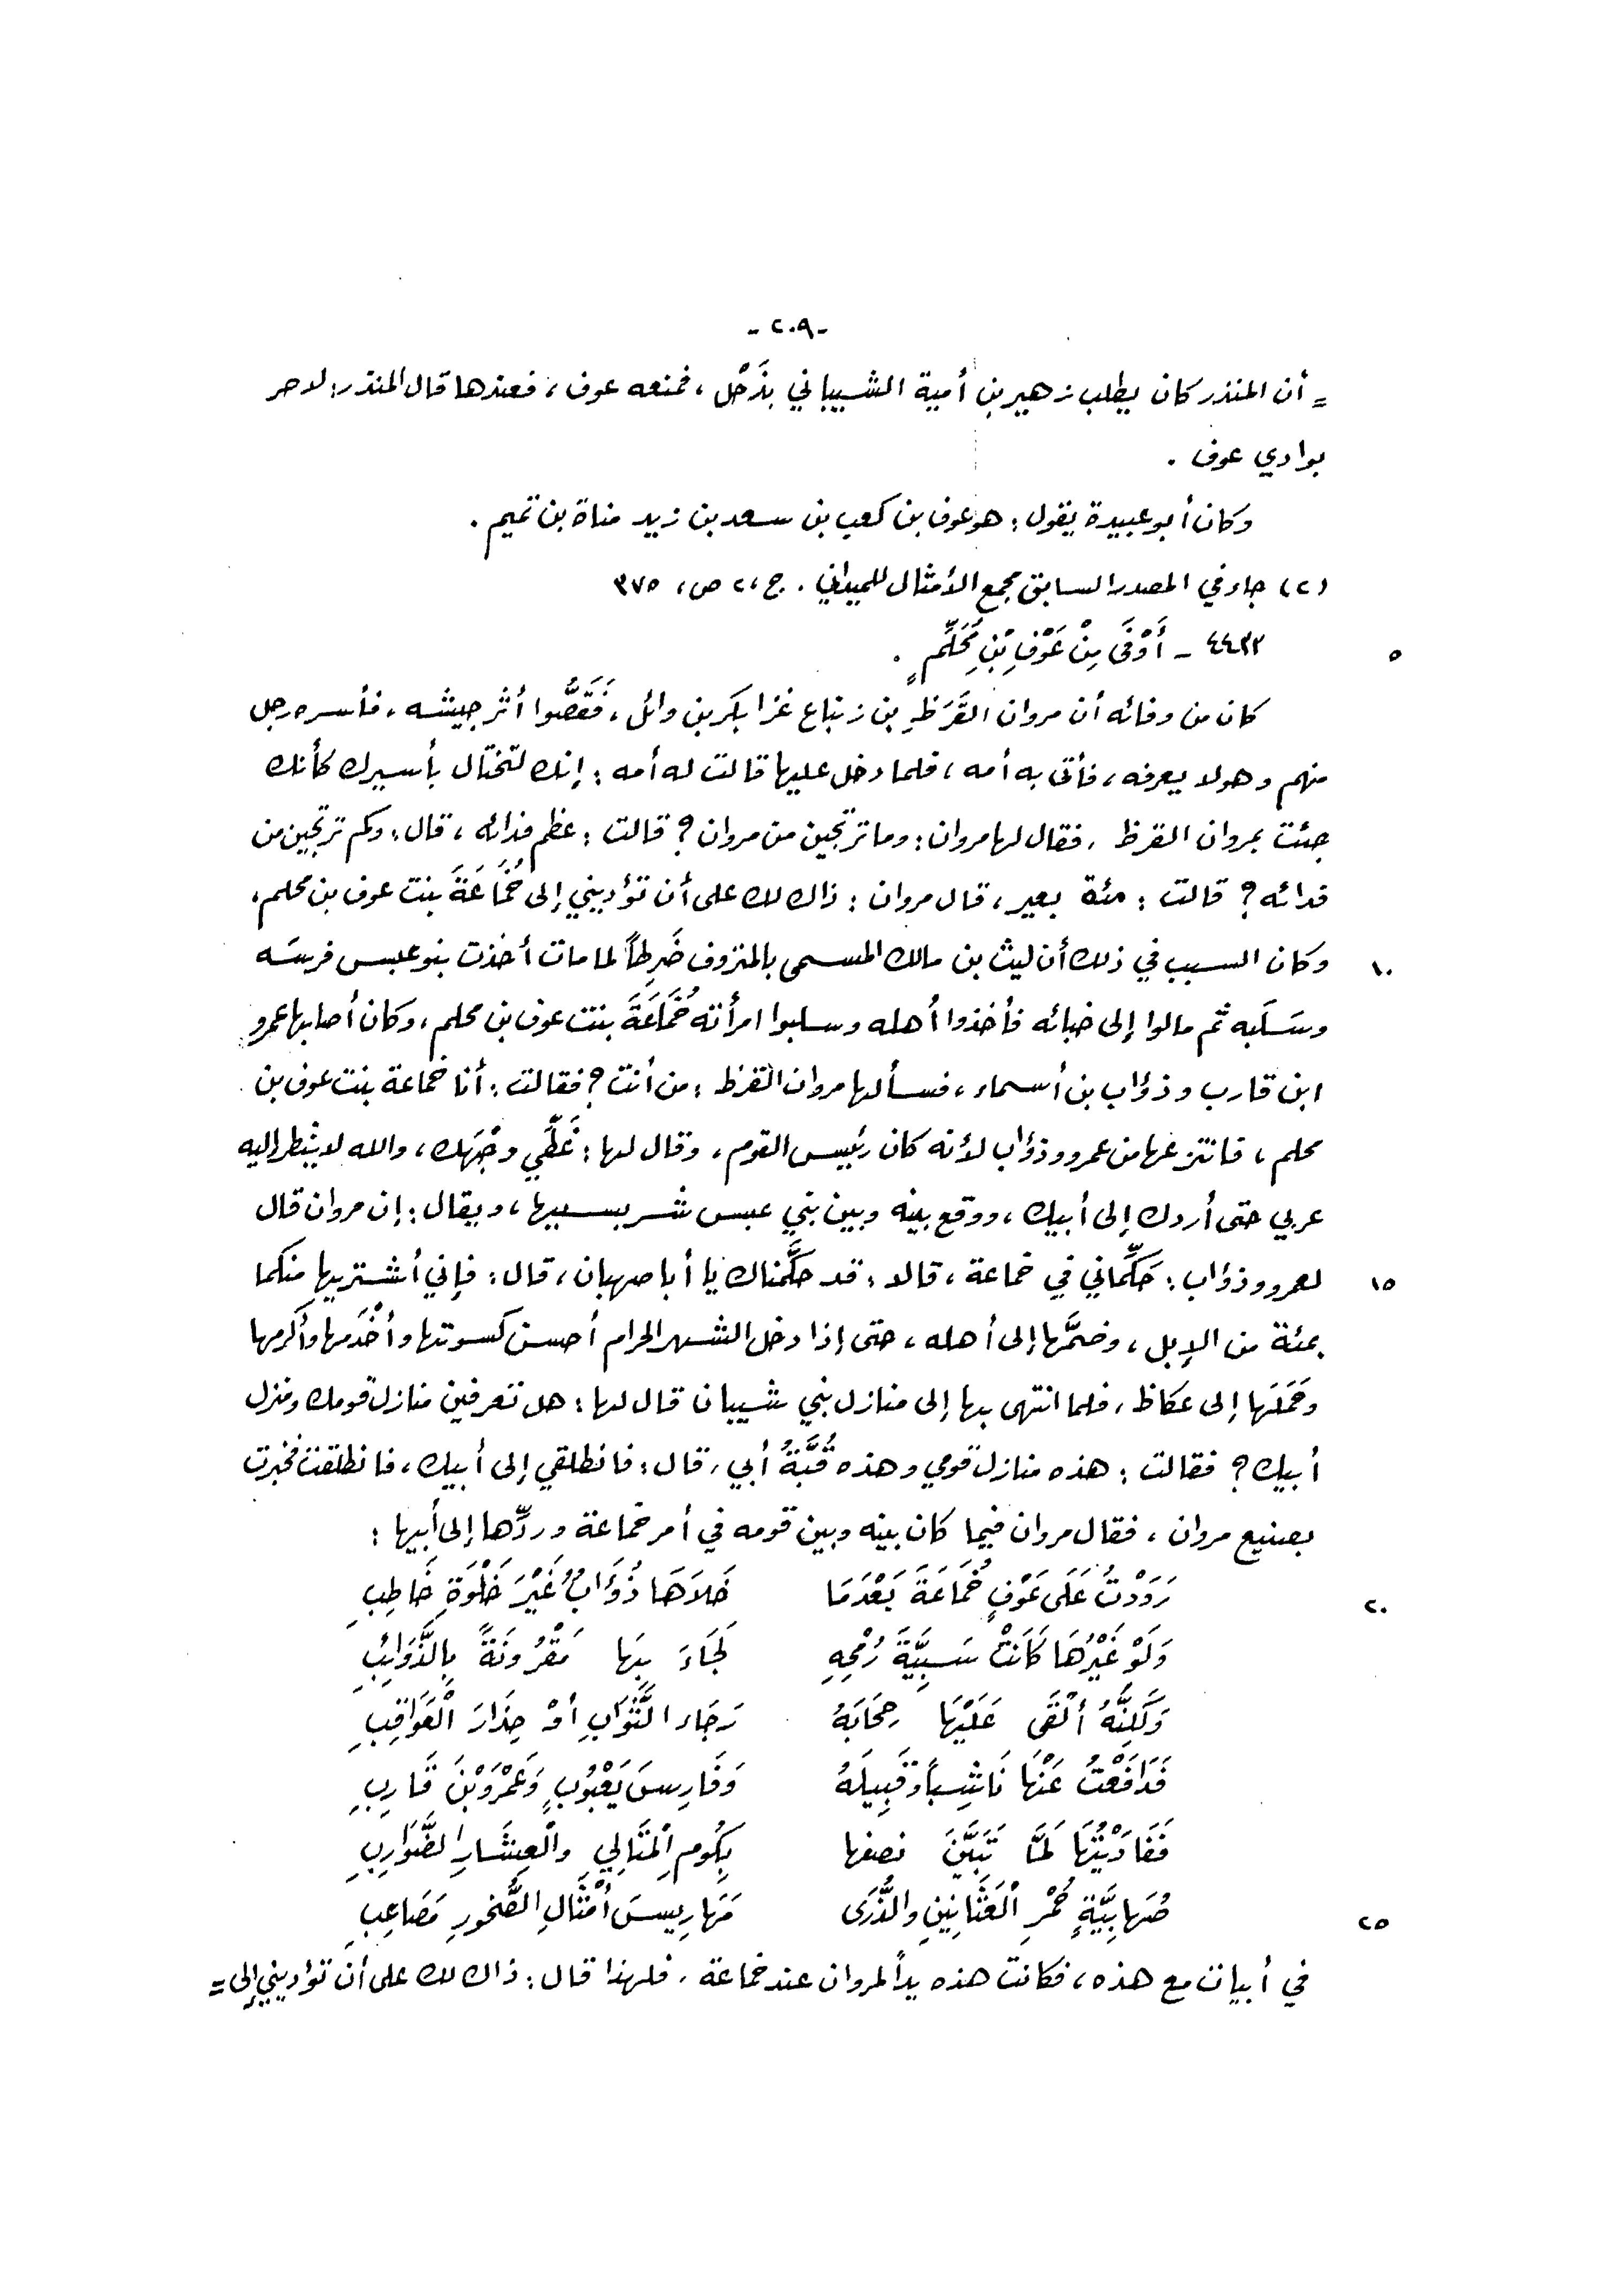 -٢٠٩-
= أن المنذر كان يطلب زهير بن أمية الشيباني بذَحْل ، فمنعه عوف ، فعندها قال المنذر: لاحر
بوادي عوف .
وكان أبو عبيدة يقول : هو عوف بن كعب بن سعد بن زيد مناة بن تميم .
(٢) جاء في المصدر السابق مجمع الأمثال للميداني . ج ،٢ ص ، ٣٧٥
٥ ٤٤٣٣ - أَوْفَى مِنْ عَوْفِ بْنِ مُحَلِّمٍ .
كان من وفائه أن مروان القَرَظِ بن زنباع غزا بكر بن وائل ، فَقَصُّوا أثر جيشه ، فأسره رجل
منهم وهو لا يعرفه ، فأتى به أمه ، فلما دخل عليها قالت له أمه : إنك لتختال بأسيرك كأنك
جئت بمروان القرظ ، فقال لها مروان : وما ترتجين من مروان ؟ قالت : عظم فدائه ، قال : وكم ترتجين من
فدائه ؟ قالت : مئة بعير ، قال مروان : ذاك لك على أن تؤديني إلى خُمَاعَةَ بنت عوف بن محلم ،
١٠ وكان السبب في ذلك أن ليث بن مالك المسمى بالمنزوف ضَرِطاً لما مات أخذت بنو عبس فرسَه
وسَلَبه ثم مالوا إلى خبائه فأخذوا أهله وسلبوا امرأته خُمَاعَةَ بنت عوف بن محلم ، وكان أصابها عمرو
ابن قارب وذؤاب بن أسماء ، فسألها مروان القرظ : من أنت ؟ فقالت : أنا خماعة بنت عوف بن
محلم ، فانتزعها من عمرو وذؤاب لأنه كان رئيس القوم ، وقال لها : غَطِّي وجْهَك ، والله لا ينظر إليه
عربي حتى أردك إلى أبيك ، ووقع بينه وبين بني عبس شر بسببها ، ويقال : إن مروان قال
١٥ لعمرو وذؤاب : حَكِّماني في خماعة ، قالا : قد حكَّمناك يا أبا صهبان ، قال : فإني أشتريها منكما
بمئة من الإبل ، وضمَّها إلى أهله ، حتى إذا دخل الشهر الحرام أحسن كسوتها وأخْدَمها وأكرمها
وحَمَلَها إلى عكاظ ، فلما انتهى بها إلى منازل بني شيبان قال لها : هل تعرفين منازل قومك ومنزل
أبيك ؟ فقالت : هذه منازل قومي وهذه قُبَّةُ أبي ، قال : فانطلقي إلى أبيك ، فانطلقت فخبرت
بصنيع مروان ، فقال مروان فيما كان بينه وبين قومه في أمر خماعة وردِّها إلى أبيها :
٢٠ رَدَدْتُ عَلَى عَوْفٍ خُمَاعَةَ بَعْدَمَا خَلَاهَا ذُؤَابٌ غَيْرَ خَلْوَةِ خَاطِبِ
وَلَوْ غَيْرُهَا كَانَتْ سَبِيَّةَ رُمْحِهِ لَجَاءَ بِهَا مَقْرُونَةً بِالذَّوَائِبِ
وَلَكِنَّهُ أَلْقَى عَلَيْهَا حِجَابَهُ رَجَاءَ الثَّوَابِ أَوْ حِذَارَ الْعَوَاقِبِ
فَدَافَعْتُ عَنْهَا نَاشِباً وَقَبِيلَهُ وَفَارِسَ يَعْبُوبٍ وَعَمْرَو بْنَ قَارِبِ
فَفَادَيْتُهَا لَمَّا تَبَيَّنَ نصفها بِكُومِ الْمَتَالِي والْعِشَارِ الضَّوَارِبِ
٢٥ صُهَابِيَّةٍ حُمْرِ الْعَثَانِينِ والذُّرَى مَهَارِيسَ أَمْثَالِ الصُّخورِ مَصَاعِبِ
في أبيات مع هذه ، فكانت هذه يداً لمروان عند خماعة ، فلهذا قال : ذاك لك على أن تؤديني إلى =